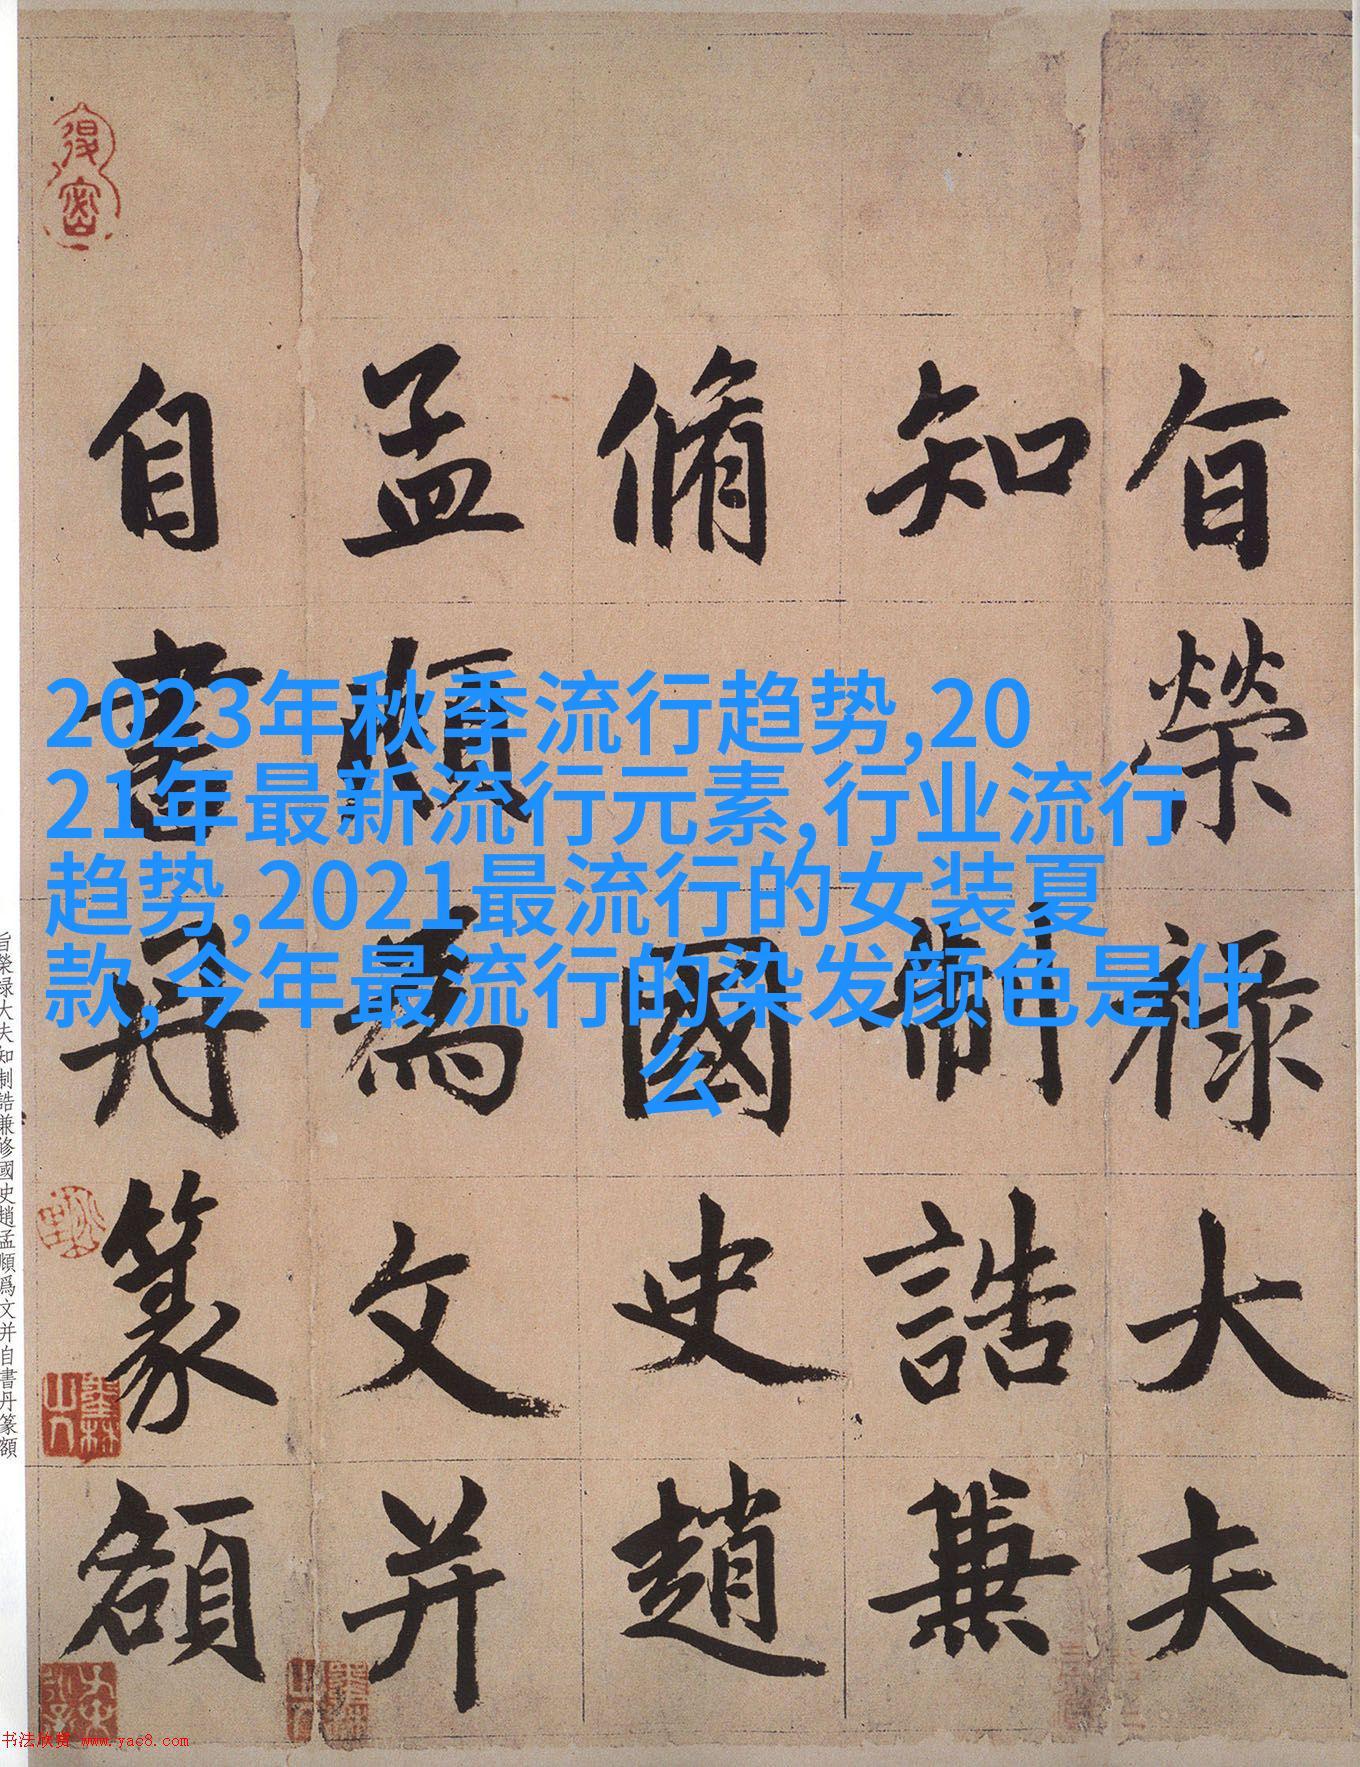 旨榮禄大夫
知制誥兼
脩國史趙
孟頫為文并
自書丹篆額
2023年秋季流行趋势,20
21年最新流行元素,行业流行
趋势,2021最流行的女装夏
款,今年最流行的染发颜色是什
么
旨榮禄大夫知制誥兼修國史趙孟頫爲文并自書丹篆額
书法欣赏 www.yac8.com